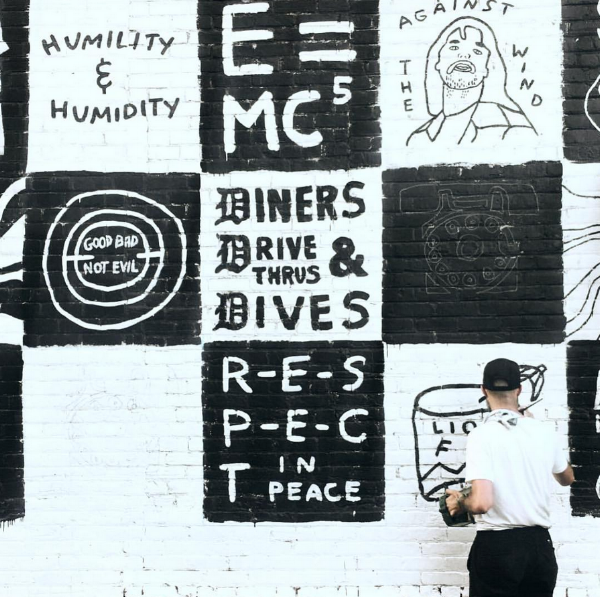 HUMILITY
&
HUMIDITY
E =
MC⁵
AGAINST
THE
WIND
GOOD BAD
NOT EVIL
DINERS
DRIVE
THRUS &
DIVES
R-E-S
P-E-C
T IN
PEACE